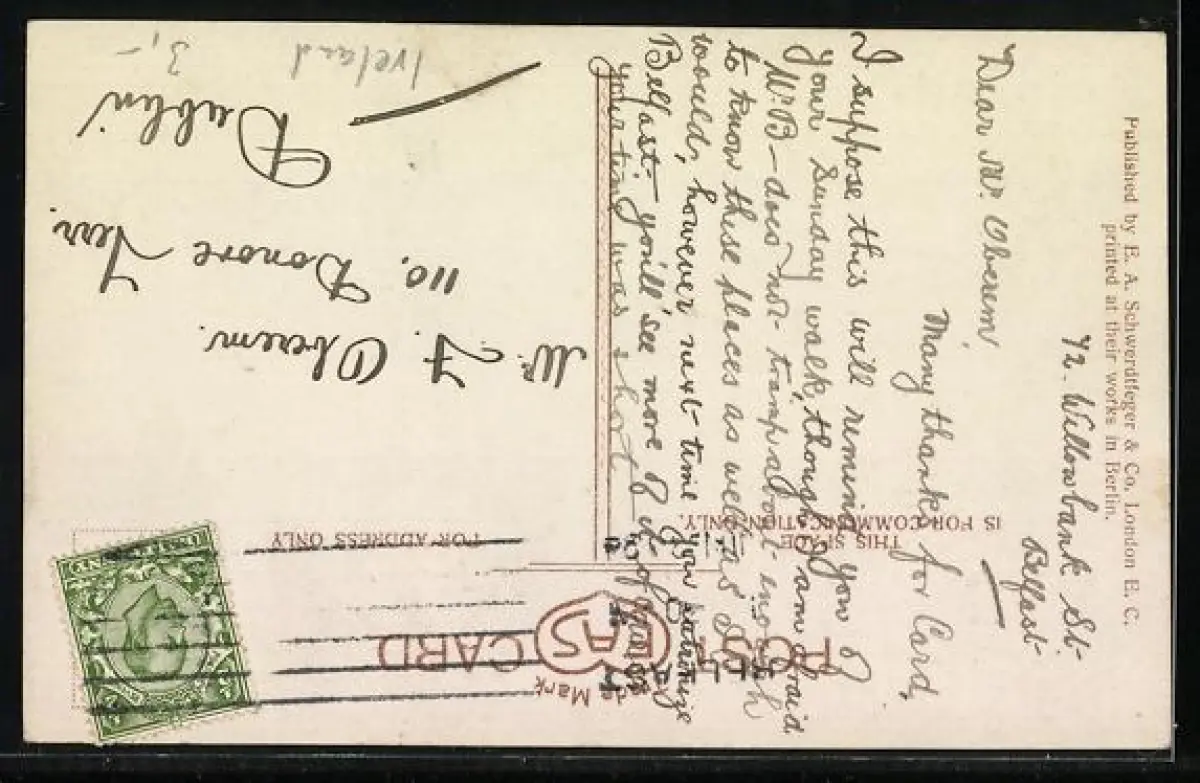 Published by E. A. Schwerdtfeger & Co., London E. C.
printed at their works in Berlin.
POST CARD
EAS
Trade Mark
THIS SPACE
IS FOR COMMUNICATION ONLY.
FOR ADDRESS ONLY
42. Willowbank St.
Belfast
Dear Mr. Oberem,
Many thanks for Card,
I suppose this will remind you of
your Sunday walk, though I am afraid
Mr. B— does not tramp about enough
to know these places as well as I
would, however next time you patronize
Belfast you'll see more of it
your time was short
Mr. F. Oberem.
110. Donore Terr.
Dublin
Ireland
3,-